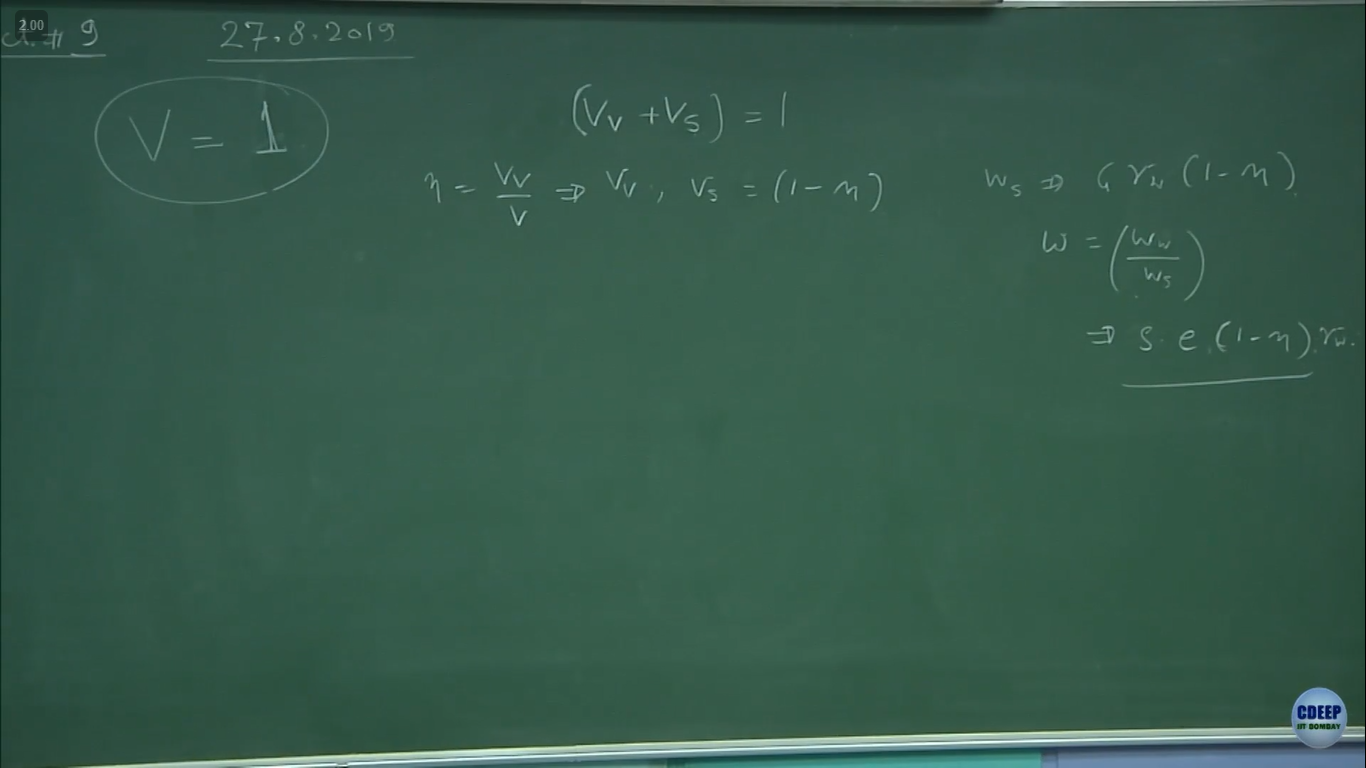 2.00
# 9 27.8.2019
V = 1
(V_V + V_S) = 1
η = V_V / V ⇒ V_V , V_S = (1 - η)
W_S ⇒ G γ_w (1 - η)
w = (W_w / W_S)
⇒ S. e. (1 - η). γ_w.
CDEEP
IIT BOMBAY